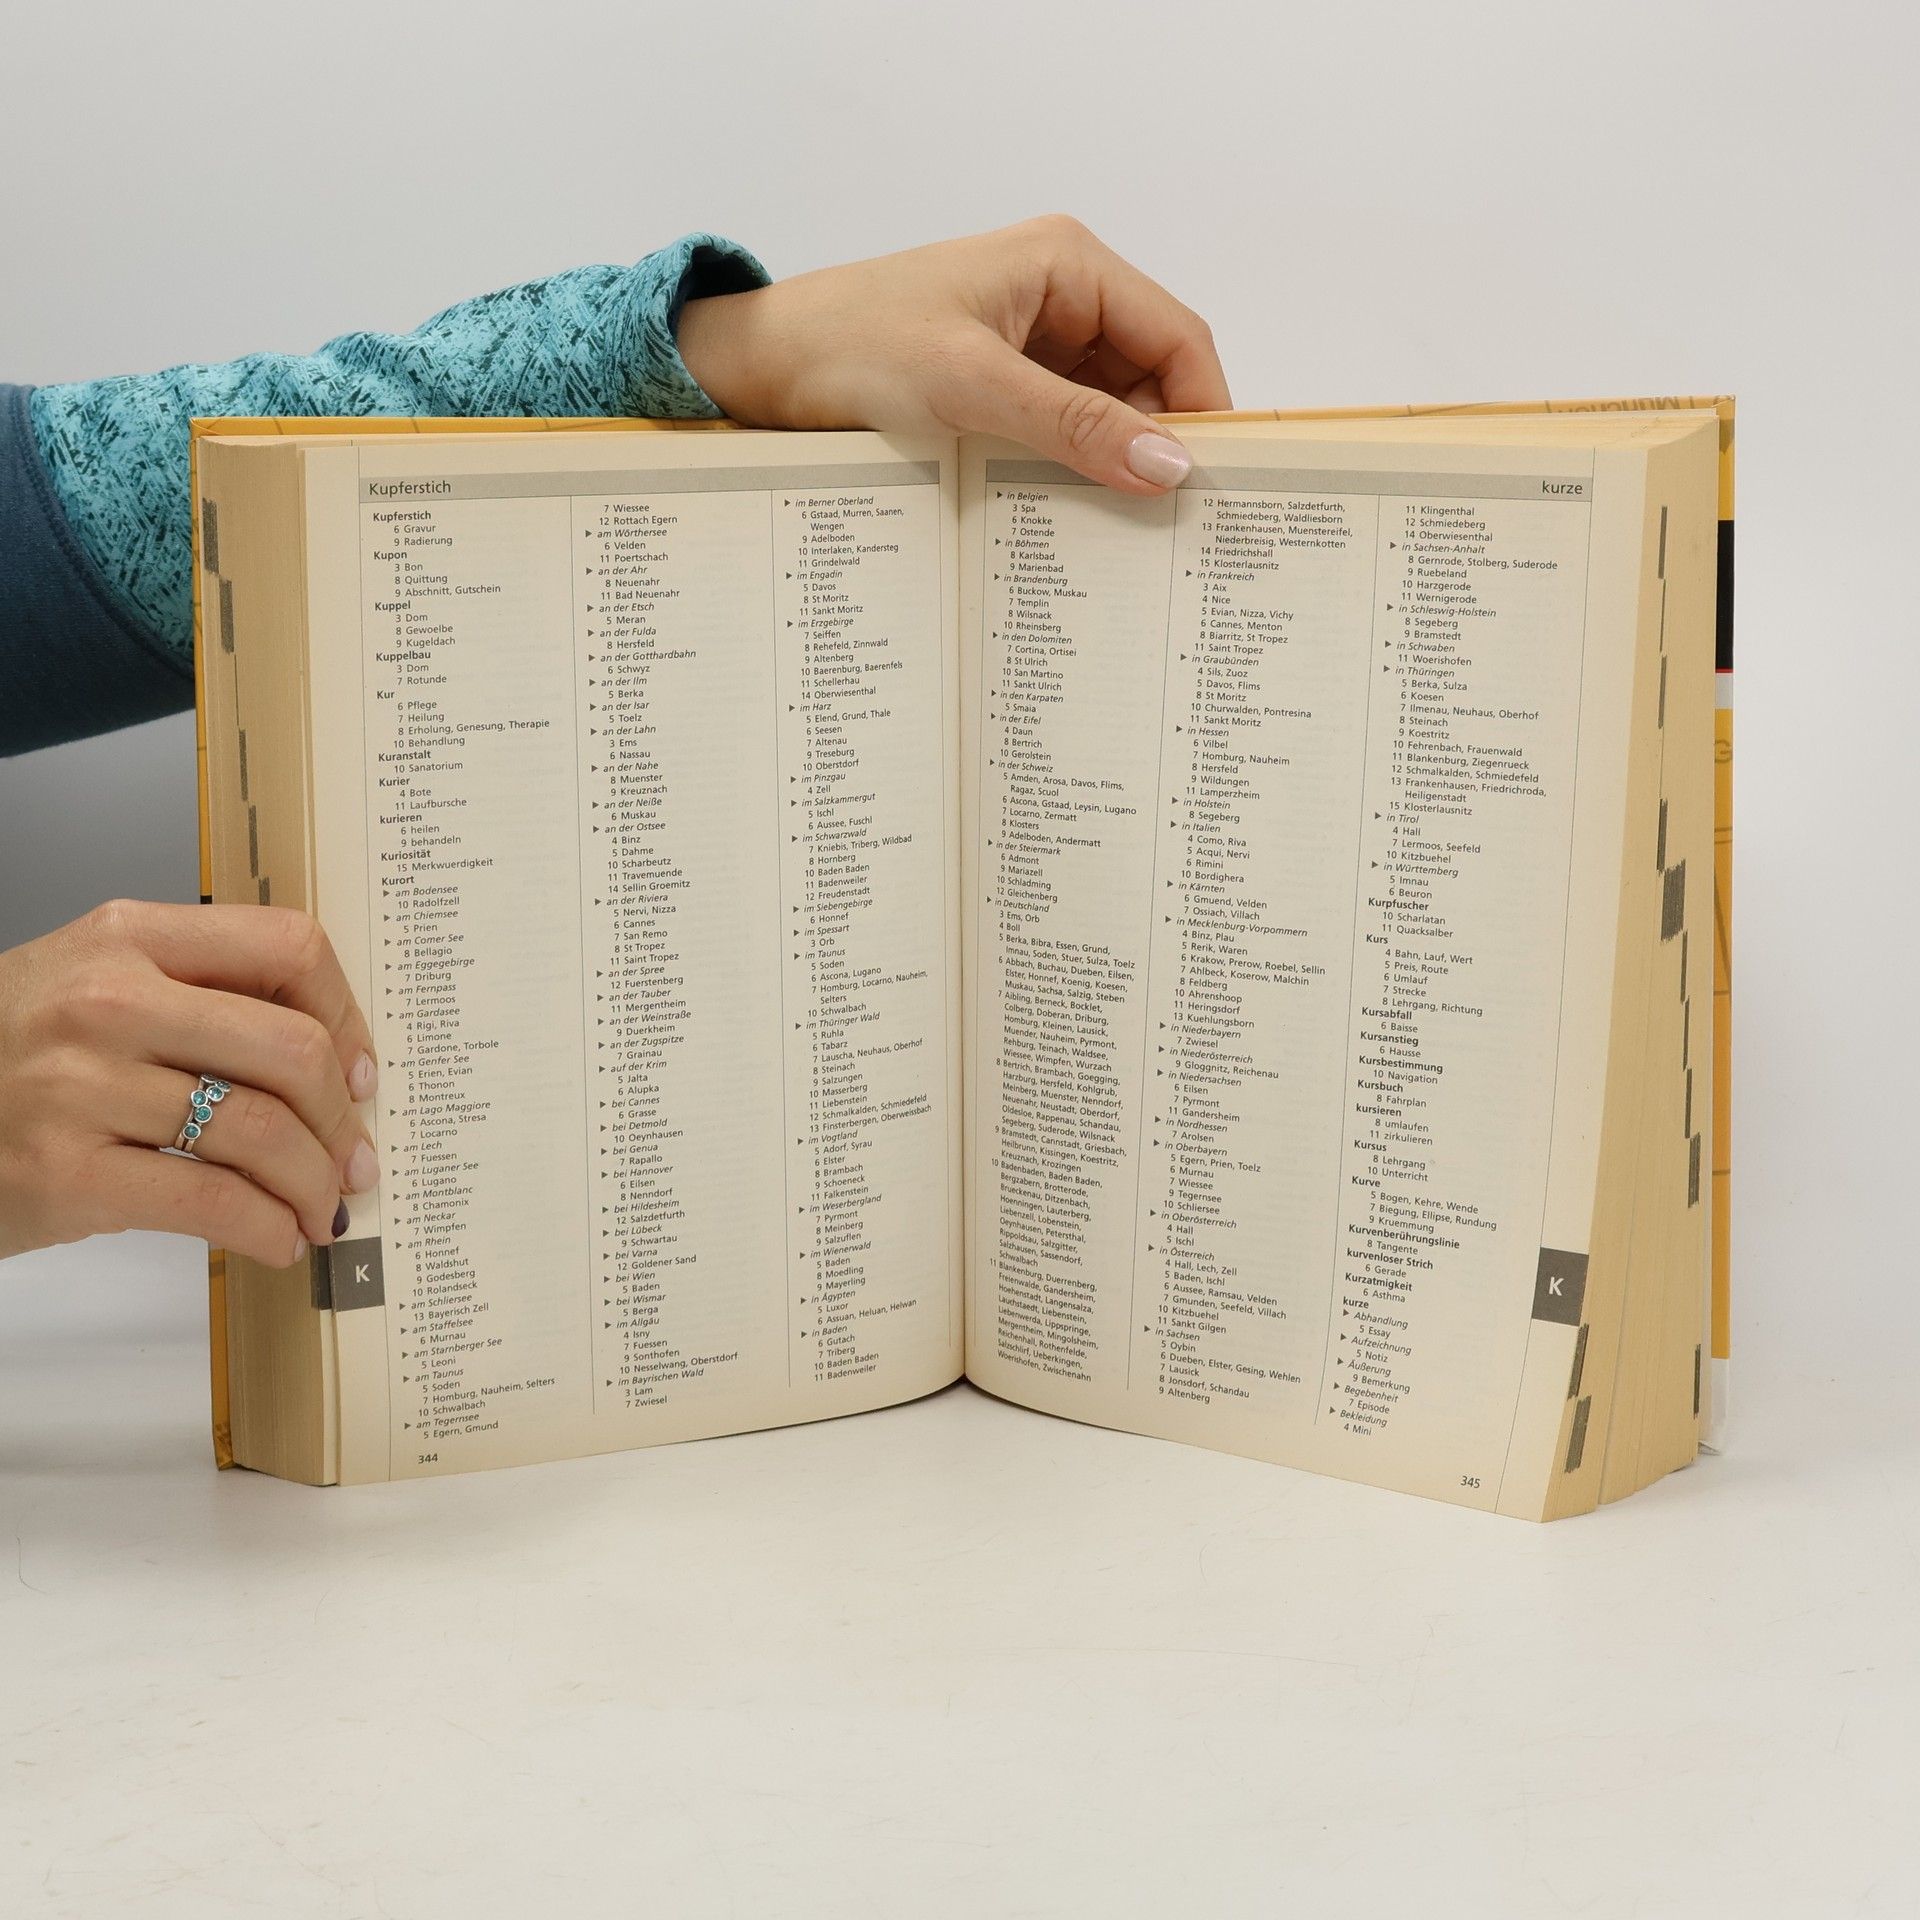 Kupferstich
Kupferstich
6 Gravur
9 Radierung
Kupon
3 Bon
8 Quittung
9 Abschnitt, Gutschein
Kuppel
3 Dom
8 Gewoelbe
9 Kugeldach
Kuppelbau
3 Dom
7 Rotunde
Kur
6 Pflege
7 Heilung
8 Erholung, Genesung, Therapie
10 Behandlung
Kuranstalt
10 Sanatorium
Kurier
4 Bote
11 Laufbursche
kurieren
6 heilen
9 behandeln
Kuriosität
15 Merkwuerdigkeit
Kurort
▶ am Bodensee
10 Radolfzell
▶ am Chiemsee
5 Prien
▶ am Comer See
8 Bellagio
▶ am Eggegebirge
7 Driburg
▶ am Fernpass
7 Lermoos
▶ am Gardasee
4 Rigi, Riva
6 Limone
7 Gardone, Torbole
▶ am Genfer See
5 Erien, Evian
6 Thonon
8 Montreux
▶ am Lago Maggiore
6 Ascona, Stresa
7 Locarno
▶ am Lech
7 Fuessen
▶ am Luganer See
6 Lugano
▶ am Montblanc
8 Chamonix
▶ am Neckar
7 Wimpfen
▶ am Rhein
6 Honnef
8 Waldshut
9 Godesberg
10 Rolandseck
▶ am Schliersee
13 Bayerisch Zell
▶ am Staffelsee
6 Murnau
▶ am Starnberger See
5 Leoni
▶ am Taunus
5 Soden
7 Homburg, Nauheim, Selters
10 Schwalbach
▶ am Tegernsee
5 Egern, Gmund
7 Wiessee
12 Rottach Egern
▶ am Wörthersee
6 Velden
11 Poertschach
▶ an der Ahr
8 Neuenahr
11 Bad Neuenahr
▶ an der Etsch
5 Meran
▶ an der Fulda
8 Hersfeld
▶ an der Gotthardbahn
6 Schwyz
▶ an der Ilm
5 Berka
▶ an der Isar
5 Toelz
▶ an der Lahn
3 Ems
6 Nassau
▶ an der Nahe
8 Muenster
9 Kreuznach
▶ an der Neiße
6 Muskau
▶ an der Ostsee
4 Binz
5 Dahme
10 Scharbeutz
11 Travemuende
14 Sellin Groemitz
▶ an der Riviera
5 Nervi, Nizza
6 Cannes
7 San Remo
8 St Tropez
11 Saint Tropez
▶ an der Spree
12 Fuerstenberg
▶ an der Tauber
11 Mergentheim
▶ an der Weinstraße
9 Duerkheim
▶ an der Zugspitze
7 Grainau
▶ auf der Krim
5 Jalta
6 Alupka
▶ bei Cannes
6 Grasse
▶ bei Detmold
10 Oeynhausen
▶ bei Genua
7 Rapallo
▶ bei Hannover
6 Eilsen
8 Nenndorf
▶ bei Hildesheim
12 Salzdetfurth
▶ bei Lübeck
9 Schwartau
▶ bei Varna
12 Goldener Sand
▶ bei Wien
5 Baden
▶ bei Wismar
5 Berga
▶ im Allgäu
4 Isny
7 Fuessen
9 Sonthofen
10 Nesselwang, Oberstdorf
▶ im Bayrischen Wald
3 Lam
7 Zwiesel
▶ im Berner Oberland
6 Gstaad, Murren, Saanen,
Wengen
9 Adelboden
10 Interlaken, Kandersteg
11 Grindelwald
▶ im Engadin
5 Davos
8 St Moritz
11 Sankt Moritz
▶ im Erzgebirge
7 Seiffen
8 Rehefeld, Zinnwald
9 Altenberg
10 Baerenburg, Baerenfels
11 Schellerhau
14 Oberwiesenthal
▶ im Harz
5 Elend, Grund, Thale
6 Seesen
7 Altenau
9 Treseburg
10 Oberstdorf
▶ im Pinzgau
4 Zell
▶ im Salzkammergut
5 Ischl
6 Aussee, Fuschl
▶ im Schwarzwald
7 Kniebis, Triberg, Wildbad
8 Hornberg
10 Baden Baden
11 Badenweiler
12 Freudenstadt
▶ im Siebengebirge
6 Honnef
▶ im Spessart
3 Orb
▶ im Taunus
5 Soden
6 Ascona, Lugano
7 Homburg, Locarno, Nauheim,
Selters
10 Schwalbach
▶ im Thüringer Wald
5 Ruhla
6 Tabarz
7 Lauscha, Neuhaus, Oberhof
8 Steinach
9 Salzungen
10 Masserberg
11 Liebenstein
12 Schmalkalden, Schmiedefeld
13 Finsterbergen, Oberweissbach
▶ im Vogtland
5 Adorf, Syrau
6 Elster
8 Brambach
9 Schoeneck
11 Falkenstein
▶ im Weserbergland
7 Pyrmont
8 Meinberg
9 Salzuflen
▶ im Wienerwald
5 Baden
8 Moedling
9 Mayerling
▶ in Ägypten
5 Luxor
6 Assuan, Heluan, Helwan
▶ in Baden
6 Gutach
7 Triberg
10 Baden Baden
11 Badenweiler
K
344
kurze
▶ in Belgien
3 Spa
6 Knokke
7 Ostende
▶ in Böhmen
8 Karlsbad
9 Marienbad
▶ in Brandenburg
6 Buckow, Muskau
7 Templin
8 Wilsnack
10 Rheinsberg
▶ in den Dolomiten
7 Cortina, Ortisei
8 St Ulrich
10 San Martino
11 Sankt Ulrich
▶ in den Karpaten
5 Smaia
▶ in der Eifel
4 Daun
8 Bertrich
10 Gerolstein
▶ in der Schweiz
5 Amden, Arosa, Davos, Flims,
Ragaz, Scuol
6 Ascona, Gstaad, Leysin, Lugano
7 Locarno, Zermatt
8 Klosters
9 Adelboden, Andermatt
▶ in der Steiermark
6 Admont
9 Mariazell
10 Schladming
12 Gleichenberg
▶ in Deutschland
3 Ems, Orb
4 Boll
5 Berka, Bibra, Essen, Grund,
Imnau, Soden, Stuer, Sulza, Toelz
6 Abbach, Buchau, Dueben, Eilsen,
Elster, Honnef, Koenig, Koesen,
Muskau, Sachsa, Salzig, Steben
7 Aibling, Berneck, Bocklet,
Colberg, Doberan, Driburg,
Homburg, Kleinen, Lausick,
Muender, Nauheim, Pyrmont,
Rehburg, Teinach, Waldsee,
Wiessee, Wimpfen, Wurzach
8 Bertrich, Brambach, Goegging,
Harzburg, Hersfeld, Kohlgrub,
Meinberg, Muenster, Nenndorf,
Neuenahr, Neustadt, Oberdorf,
Oldesloe, Rappenau, Schandau,
Segeberg, Suderode, Wilsnack
9 Bramstedt, Cannstadt, Griesbach,
Heilbrunn, Kissingen, Koestritz,
Kreuznach, Krozingen
10 Badenbaden, Baden Baden,
Bergzabern, Brotterode,
Brueckenau, Ditzenbach,
Hoenningen, Lauterberg,
Liebenzell, Lobenstein,
Oeynhausen, Petersthal,
Rippoldsau, Salzgitter,
Salzhausen, Sassendorf,
Schwalbach
11 Blankenburg, Duerrenberg,
Freienwalde, Gandersheim,
Hoehenstadt, Langensalza,
Lauchstaedt, Liebenstein,
Liebenwerda, Lippspringe,
Mergentheim, Mingolsheim,
Reichenhall, Rothenfelde,
Salzschlirf, Ueberkingen,
Woerishofen, Zwischenahn
12 Hermannsborn, Salzdetfurth,
Schmiedeberg, Waldliesborn
13 Frankenhausen, Muenstereifel,
Niederbreisig, Westernkotten
14 Friedrichshall
15 Klosterlausnitz
▶ in Frankreich
3 Aix
4 Nice
5 Evian, Nizza, Vichy
6 Cannes, Menton
8 Biarritz, St Tropez
11 Saint Tropez
▶ in Graubünden
4 Sils, Zuoz
5 Davos, Flims
8 St Moritz
10 Churwalden, Pontresina
11 Sankt Moritz
▶ in Hessen
6 Vilbel
7 Homburg, Nauheim
8 Hersfeld
9 Wildungen
11 Lamperzheim
▶ in Holstein
8 Segeberg
▶ in Italien
4 Como, Riva
5 Acqui, Nervi
6 Rimini
10 Bordighera
▶ in Kärnten
6 Gmuend, Velden
7 Ossiach, Villach
▶ in Mecklenburg-Vorpommern
4 Binz, Plau
5 Rerik, Waren
6 Krakow, Prerow, Roebel, Sellin
7 Ahlbeck, Koserow, Malchin
8 Feldberg
10 Ahrenshoop
11 Heringsdorf
13 Kuehlungsborn
▶ in Niederbayern
7 Zwiesel
▶ in Niederösterreich
9 Gloggnitz, Reichenau
▶ in Niedersachsen
6 Eilsen
7 Pyrmont
11 Gandersheim
▶ in Nordhessen
7 Arolsen
▶ in Oberbayern
5 Egern, Prien, Toelz
6 Murnau
7 Wiessee
9 Tegernsee
10 Schliersee
▶ in Oberösterreich
4 Hall
5 Ischl
▶ in Österreich
4 Hall, Lech, Zell
5 Baden, Ischl
6 Aussee, Ramsau, Velden
7 Gmunden, Seefeld, Villach
10 Kitzbuehel
11 Sankt Gilgen
▶ in Sachsen
5 Oybin
6 Dueben, Elster, Gesing, Wehlen
7 Lausick
8 Jonsdorf, Schandau
9 Altenberg
11 Klingenthal
12 Schmiedeberg
14 Oberwiesenthal
▶ in Sachsen-Anhalt
8 Gernrode, Stolberg, Suderode
9 Ruebeland
10 Harzgerode
11 Wernigerode
▶ in Schleswig-Holstein
8 Segeberg
9 Bramstedt
▶ in Schwaben
11 Woerishofen
▶ in Thüringen
5 Berka, Sulza
6 Koesen
7 Ilmenau, Neuhaus, Oberhof
8 Steinach
9 Koestritz
10 Fehrenbach, Frauenwald
11 Blankenburg, Ziegenrueck
12 Schmalkalden, Schmiedefeld
13 Frankenhausen, Friedrichroda,
Heiligenstadt
15 Klosterlausnitz
▶ in Tirol
4 Hall
7 Lermoos, Seefeld
10 Kitzbuehel
▶ in Württemberg
5 Imnau
6 Beuron
Kurpfuscher
10 Scharlatan
11 Quacksalber
Kurs
4 Bahn, Lauf, Wert
5 Preis, Route
6 Umlauf
7 Strecke
8 Lehrgang, Richtung
Kursabfall
6 Baisse
Kursanstieg
6 Hausse
Kursbestimmung
10 Navigation
Kursbuch
8 Fahrplan
kursieren
8 umlaufen
11 zirkulieren
Kursus
8 Lehrgang
10 Unterricht
Kurve
5 Bogen, Kehre, Wende
7 Biegung, Ellipse, Rundung
9 Kruemmung
Kurvenberührungslinie
8 Tangente
kurvenloser Strich
6 Gerade
Kurzatmigkeit
6 Asthma
kurze
▶ Abhandlung
5 Essay
▶ Aufzeichnung
5 Notiz
▶ Äußerung
9 Bemerkung
▶ Begebenheit
7 Episode
▶ Bekleidung
4 Mini
K
345